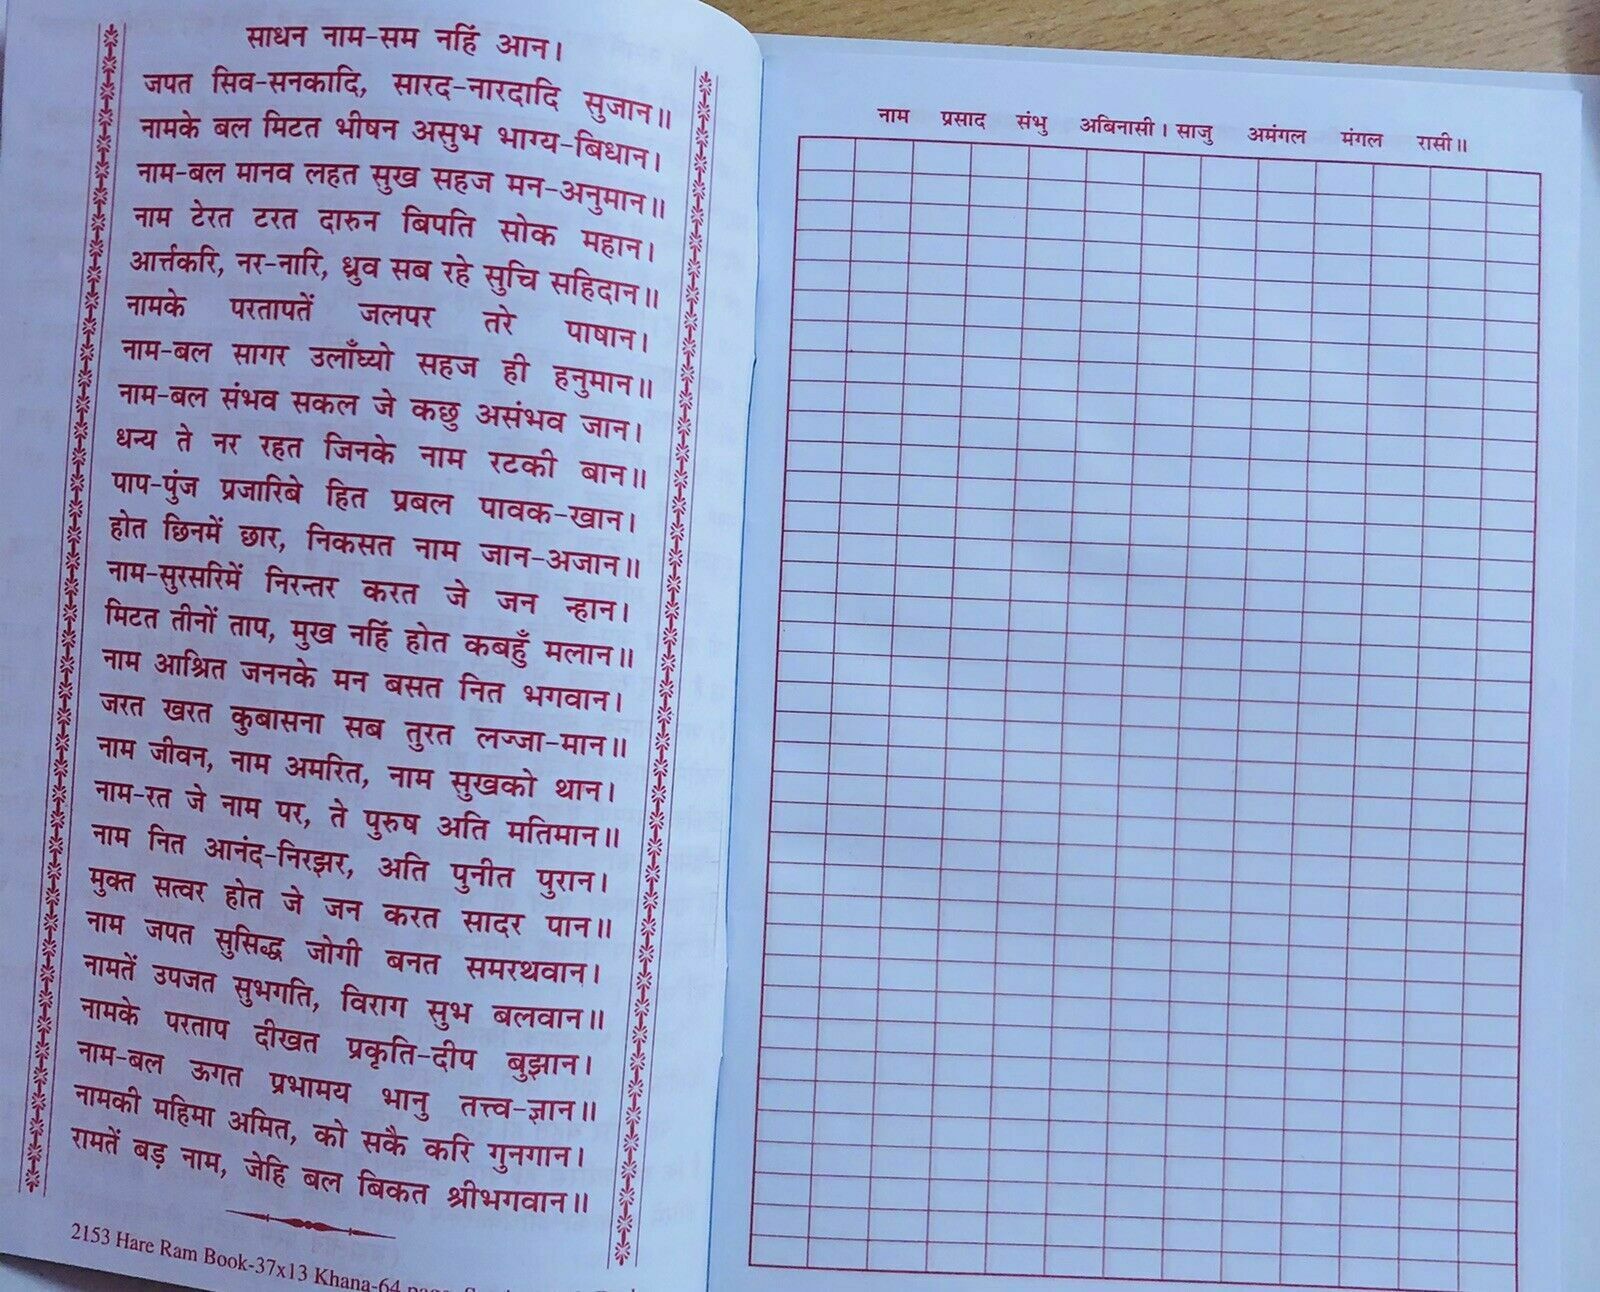 साधन नाम-सम नहिं आन।
जपत सिव-सनकादि, सारद-नारदादि सुजान॥
नामके बल मिटत भीषन असुभ भाग्य-बिधान।
नाम-बल मानव लहत सुख सहज मन-अनुमान॥
नाम टेरत टरत दारुन बिपति सोक महान।
आर्त्तकरि, नर-नारि, ध्रुव सब रहे सुचि सहिदान॥
नामके परतापतें जलपर तरे पाषान।
नाम-बल सागर उलाँघ्यो सहज ही हनुमान॥
नाम-बल संभव सकल जे कछु असंभव जान।
धन्य ते नर रहत जिनके नाम रटकी बान॥
पाप-पुंज प्रजारिबे हित प्रबल पावक-खान।
होत छिनमें छार, निकसत नाम जान-अजान॥
नाम-सुरसरिमें निरन्तर करत जे जन न्हान।
मिटत तीनों ताप, मुख नहिं होत कबहुँ मलान॥
नाम आश्रित जननके मन बसत नित भगवान।
जरत खरत कुबासना सब तुरत लज्जा-मान॥
नाम जीवन, नाम अमरित, नाम सुखको थान।
नाम-रत जे नाम पर, ते पुरुष अति मतिमान॥
नाम नित आनंद-निरझर, अति पुनीत पुरान।
मुक्त सत्वर होत जे जन करत सादर पान॥
नाम जपत सुसिद्ध जोगी बनत समरथवान।
नामतें उपजत सुभगति, विराग सुभ बलवान॥
नामके परताप दीखत प्रकृति-दीप बुझान।
नाम-बल ऊगत प्रभामय भानु तत्त्व-ज्ञान॥
नामकी महिमा अमित, को सकै करि गुनगान।
रामतें बड़ नाम, जेहि बल बिकत श्रीभगवान॥
2153 Hare Ram Book-37x13 Khana-64
नाम प्रसाद संभु अबिनासी। साजु अमंगल मंगल रासी॥